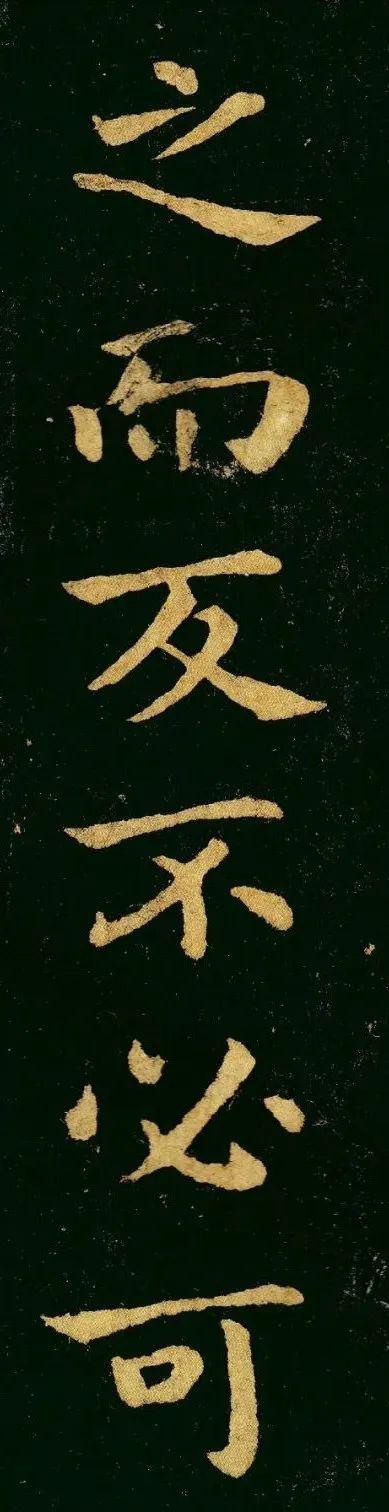 之而反不必可